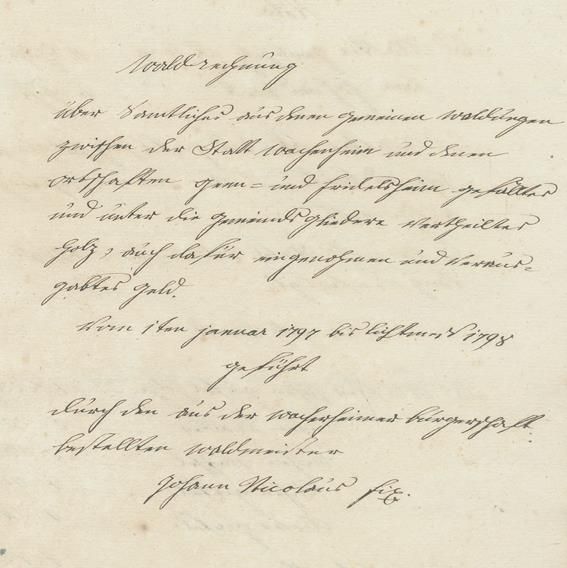 Waldrechnung
über Samtliches aus denen gemeinen Waldungen
zwischen der Statt Wachenheim und denen
ortschafften Gönn= und fridelsheim gefälltes
und unter die gemeinds glieder vertheiltes
Holz, auch dafür eingenohmen und veraus=
gabtes geld.
Vom 1ten januar 1797 bis lichtmess 1798
geführt
durch den aus der Wachenheimer bürgerschaft
bestellten Waldmeister
Johann Nicolaus fix.